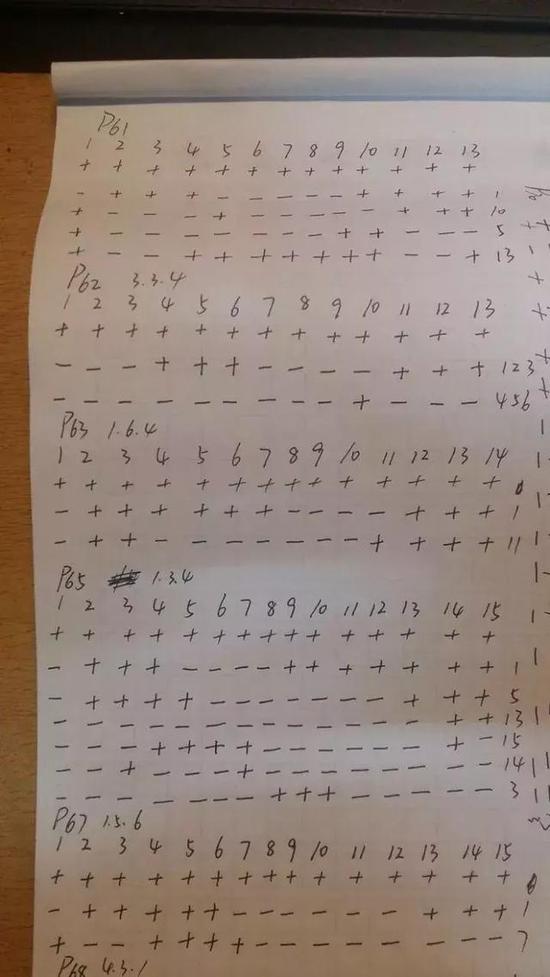 P61
1 2 3 4 5 6 7 8 9 10 11 12 13
+ + + + + + + + + + + + +
- + + + - - - - - + + + + 1
+ - - - + - - - - - + + + 10
+ - - - - - - - + + - - - 5
+ - - + + + + + + + - - + 13
P62 3.3.4
1 2 3 4 5 6 7 8 9 10 11 12 13
+ + + + + + + + + + + + +
- - - + + + - - - - + + + 123
- - - - - - - - - + - - - 456
P63 1.6.4
1 2 3 4 5 6 7 8 9 10 11 12 13 14
+ + + + + + + + + + + + + + 0
- + + + + + + - - - - + + + 1
- + + - - - - - - - + + + + 11
P65 1.3.4
1 2 3 4 5 6 7 8 9 10 11 12 13 14 15
+ + + + + + + + + + + + + + +
- + + + - - - - + + + + + + + 1
- + + + + - - - - - - - + + + 5
- - - - - - - - - - - - - + + 13
- - - + + + + - - - - - - + - 15
- - + - - - + - - - - - - - - 14
- - - - - - - + + + - - - - - 3
P67 1.5.6
1 2 3 4 5 6 7 8 9 10 11 12 13 14 15
+ + + + + + + + + + + + + + + 0
- + + + + + - - - - - - + + + 1
+ - - + + + + - - - - - - - - 7
P68 4.3.1